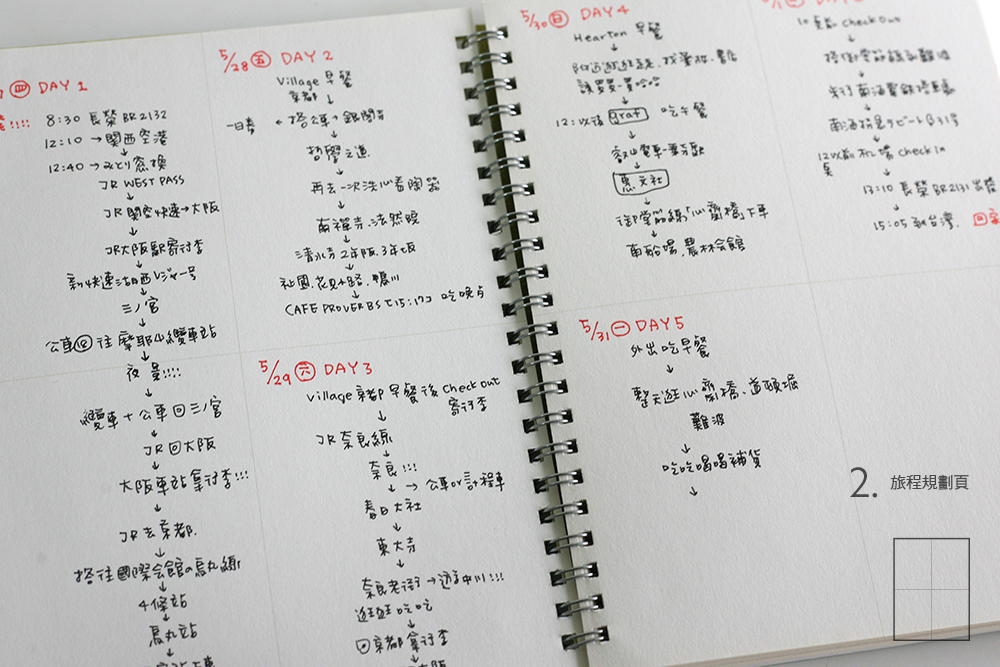 ㊃ DAY 1
8:30 長榮 BR2132
12:10 → 関西空港
12:40 → みどり窓換
JR WEST PASS
↓
JR 関空快速 → 大阪
↓
JR大阪駅寄行李
↓
新快速
三ノ宮
↓
公車 往摩耶山纜車站
↓
夜景!!!!
↓
纜車+公車回三ノ宮
↓
JR回大阪
↓
大阪車站拿行李!!!
↓
JR去京都.
↓
搭往國際会館の烏丸線
↓
4條站
↓
烏丸站
↓
5/28 ㊄ DAY 2
Village 早餐
京都 ↓
銀閣寺
↓
哲學之道
↓
再去一次洗心看陶器
↓
南禪寺.法然院
↓
清水寺2年阪.3年坂
↓
祇園.花見小路.鴨川
↓
CAFE PROVERBS 吃晚点
5/29 ㊅ DAY 3
Village 京都 早餐後 Check out
寄行李
↓
JR奈良線
↓
奈良!!!
↓ → 公車or計程車
春日大社
↓
東大寺
↓
奈良老街 → 遊中川!!!
逛逛吃吃
↓
回京都拿行李
↓
大阪
5/30 ㊐ DAY 4
Hearton 早餐
↓
12:以後 graf 吃午餐
↓
↓
惠文社
↓
御堂筋線「心齋橋」下車
↓
南船場.農林会館
5/31 ㊀ DAY 5
外出吃早餐
↓
整天逛心齋橋、道頓堀
難波
↓
吃吃喝喝補貨
↓
Check Out
↓
↓
↓
南海特急ラピート
↓
Check In
↓
13:10 長榮 BR2131 出發
↓
15:05 到台灣.
2. 旅程規劃頁